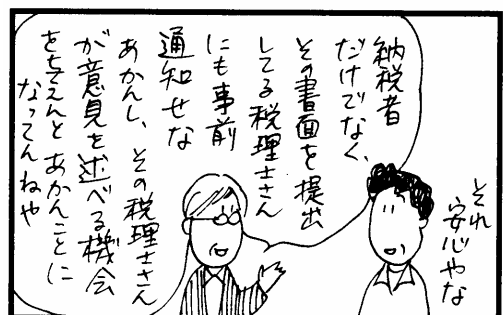 納税者
だけでなく、
その書面を提出
してる税理士さん
にも事前
通知せな
あかんし、その税理士さん
が意見を述べる機会
を与えんとあかんことに
なってんねや
それ
安心やな